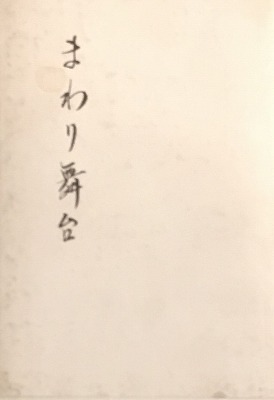 まわり舞台